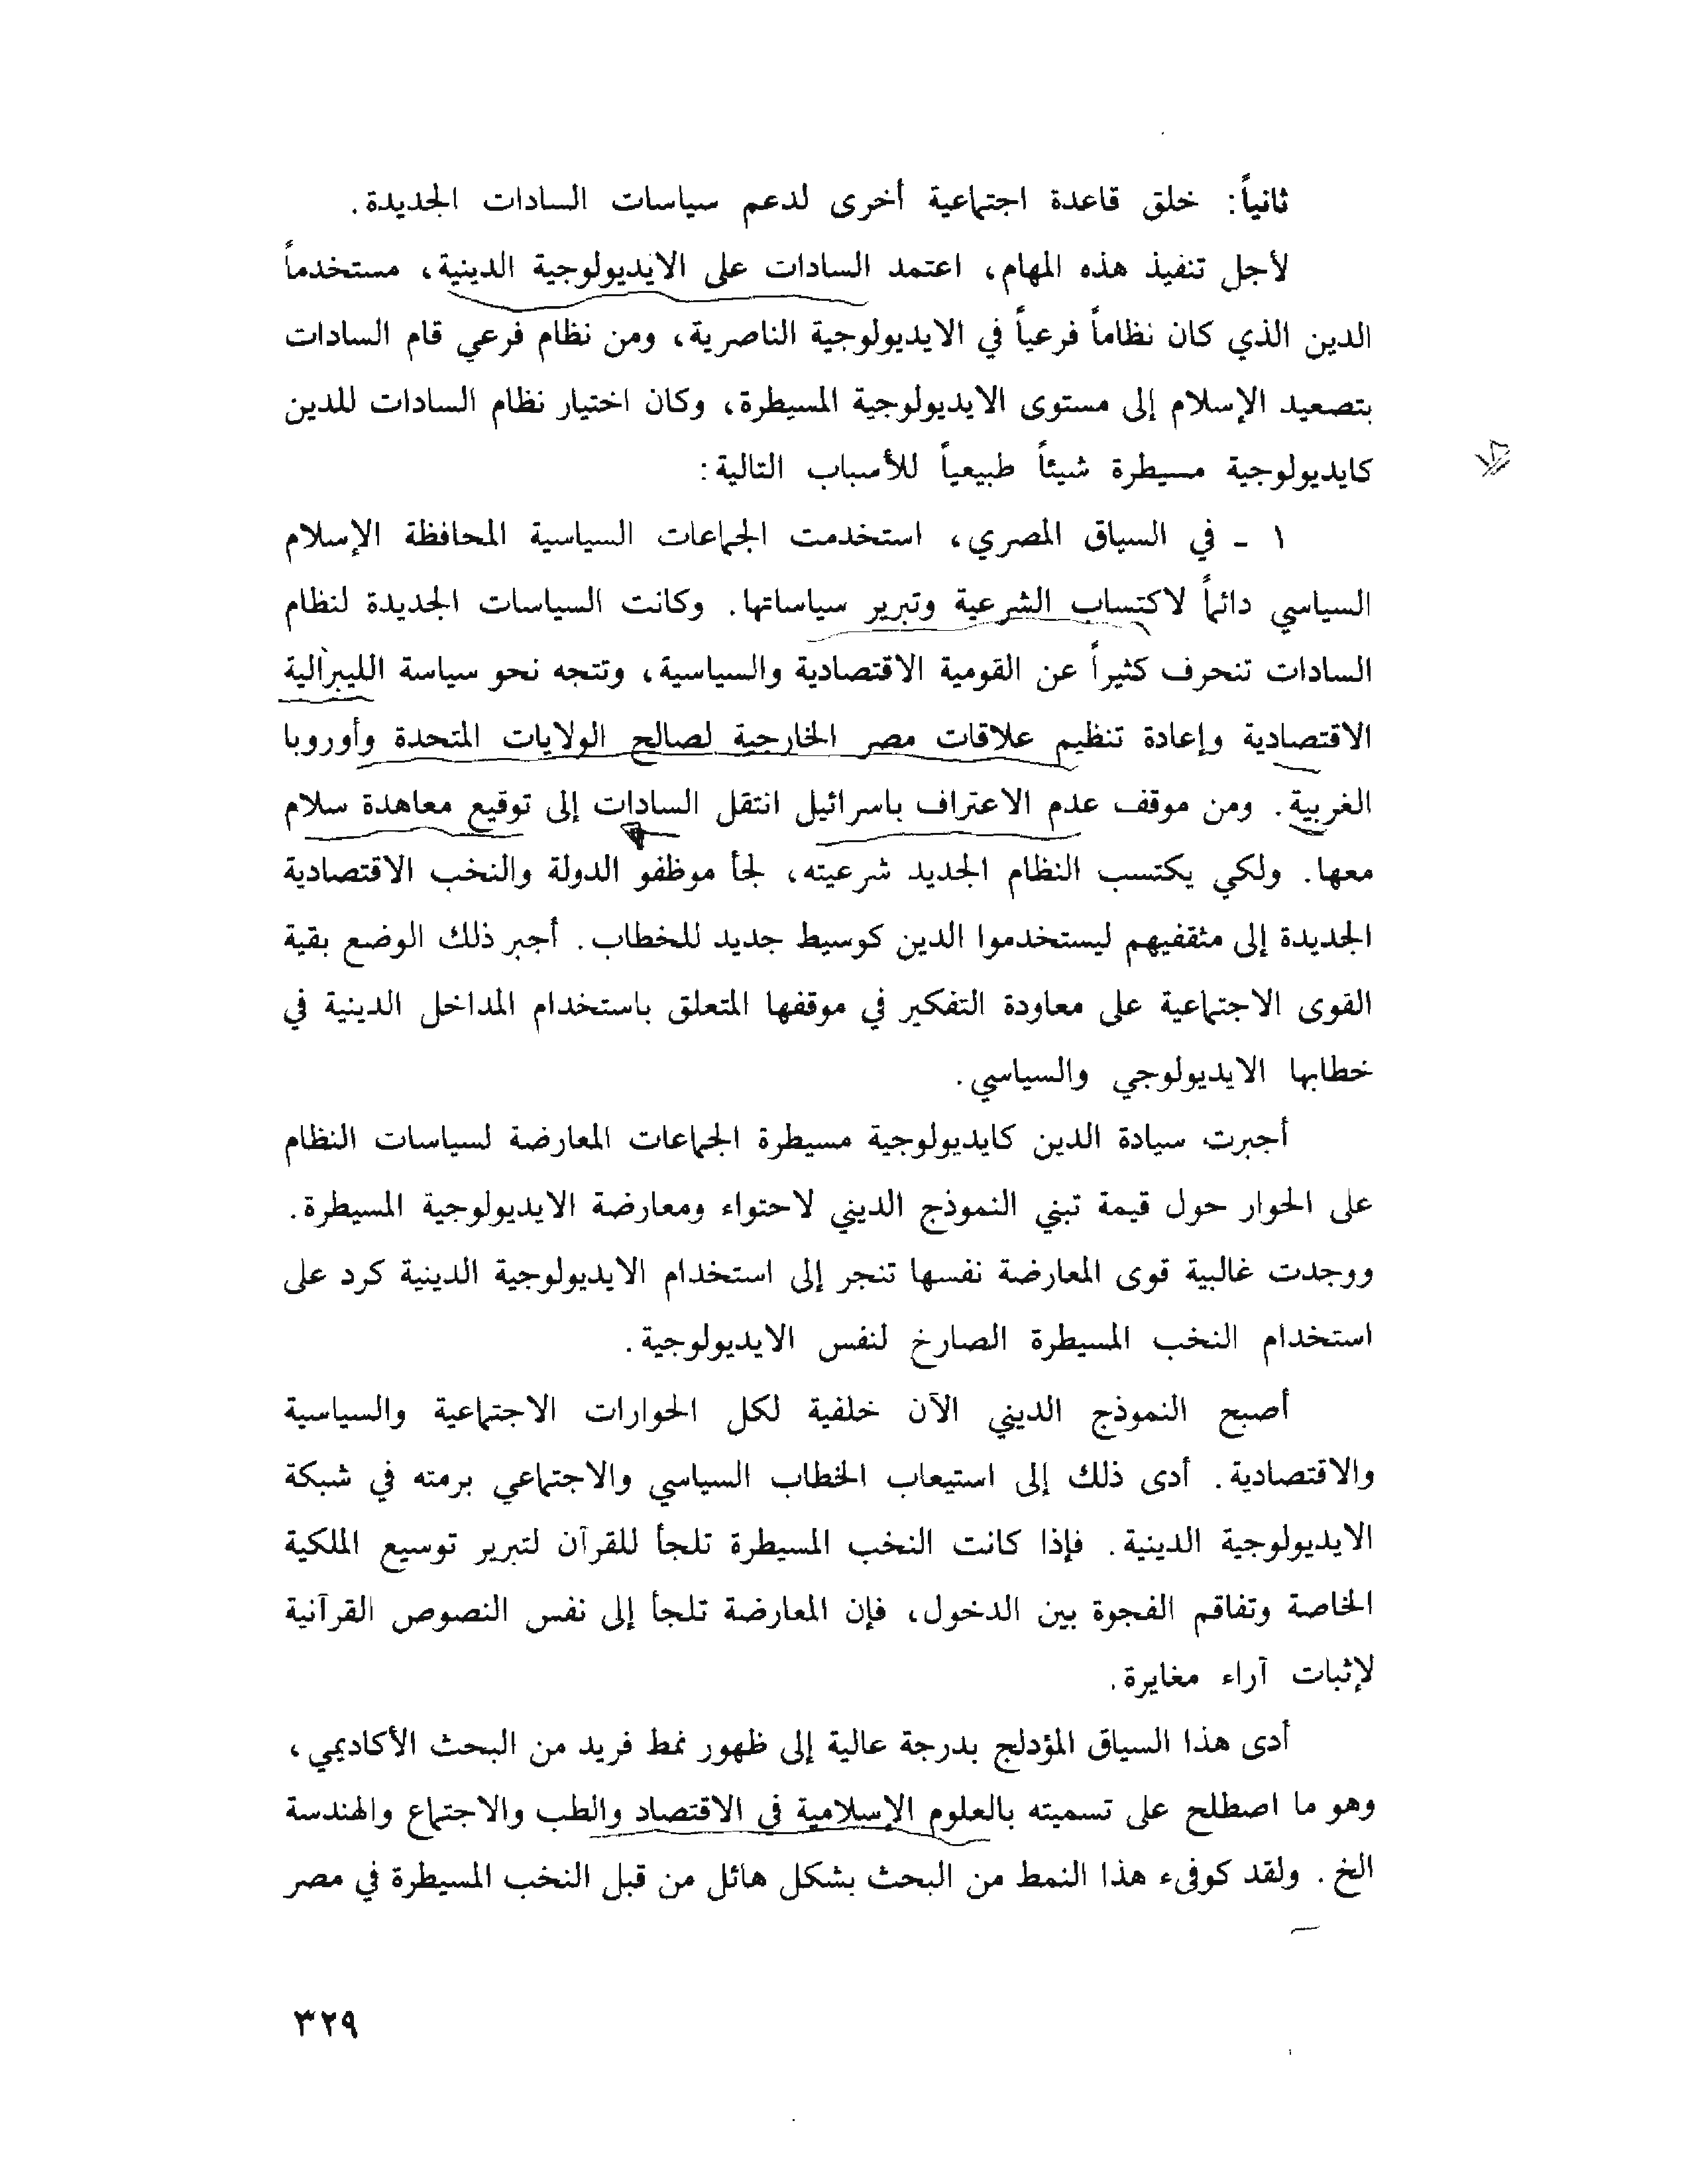 ثانياً: خلق قاعدة اجتماعية أخرى لدعم سياسات السادات الجديدة.
لأجل تنفيذ هذه المهام، اعتمد السادات على الايديولوجية الدينية، مستخدماً
الدين الذي كان نظاماً فرعياً في الايديولوجية الناصرية، ومن نظام فرعي قام السادات
بتصعيد الإسلام إلى مستوى الايديولوجية المسيطرة، وكان اختيار نظام السادات للدين
كايديولوجية مسيطرة شيئاً طبيعياً للأسباب التالية:
١ - في السياق المصري، استخدمت الجماعات السياسية المحافظة الإسلام
السياسي دائماً لاكتساب الشرعية وتبرير سياساتها. وكانت السياسات الجديدة لنظام
السادات تنحرف كثيراً عن القومية الاقتصادية والسياسية، وتتجه نحو سياسة الليبرالية
الاقتصادية وإعادة تنظيم علاقات مصر الخارجية لصالح الولايات المتحدة وأوروبا
الغربية. ومن موقف عدم الاعتراف باسرائيل انتقل السادات إلى توقيع معاهدة سلام
معها. ولكي يكتسب النظام الجديد شرعيته، لجأ موظفو الدولة والنخب الاقتصادية
الجديدة إلى مثقفيهم ليستخدموا الدين كوسيط جديد للخطاب. أجبر ذلك الوضع بقية
القوى الاجتماعية على معاودة التفكير في موقفها المتعلق باستخدام المداخل الدينية في
خطابها الايديولوجي والسياسي.
أجبرت سيادة الدين كايديولوجية مسيطرة الجماعات المعارضة لسياسات النظام
على الحوار حول قيمة تبني النموذج الديني لاحتواء ومعارضة الايديولوجية المسيطرة.
ووجدت غالبية قوى المعارضة نفسها تنجر إلى استخدام الايديولوجية الدينية كرد على
استخدام النخب المسيطرة الصارخ لنفس الايديولوجية.
أصبح النموذج الديني الآن خلفية لكل الحوارات الاجتماعية والسياسية
والاقتصادية. أدى ذلك إلى استيعاب الخطاب السياسي والاجتماعي برمته في شبكة
الايديولوجية الدينية. فإذا كانت النخب المسيطرة تلجأ للقرآن لتبرير توسيع الملكية
الخاصة وتفاقم الفجوة بين الدخول، فإن المعارضة تلجأ إلى نفس النصوص القرآنية
لإثبات آراء مغايرة.
أدى هذا السياق المؤدلج بدرجة عالية إلى ظهور نمط فريد من البحث الأكاديمي،
وهو ما اصطلح على تسميته بالعلوم الإسلامية في الاقتصاد والطب والاجتماع والهندسة
الخ. ولقد كوفىء هذا النمط من البحث بشكل هائل من قبل النخب المسيطرة في مصر
٣٢٩